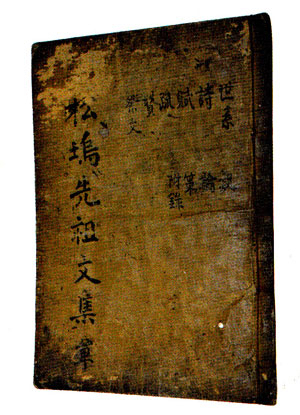 世系
詩 論
賦 策
疏 附錄
贊
祭文
松塢先祖文集